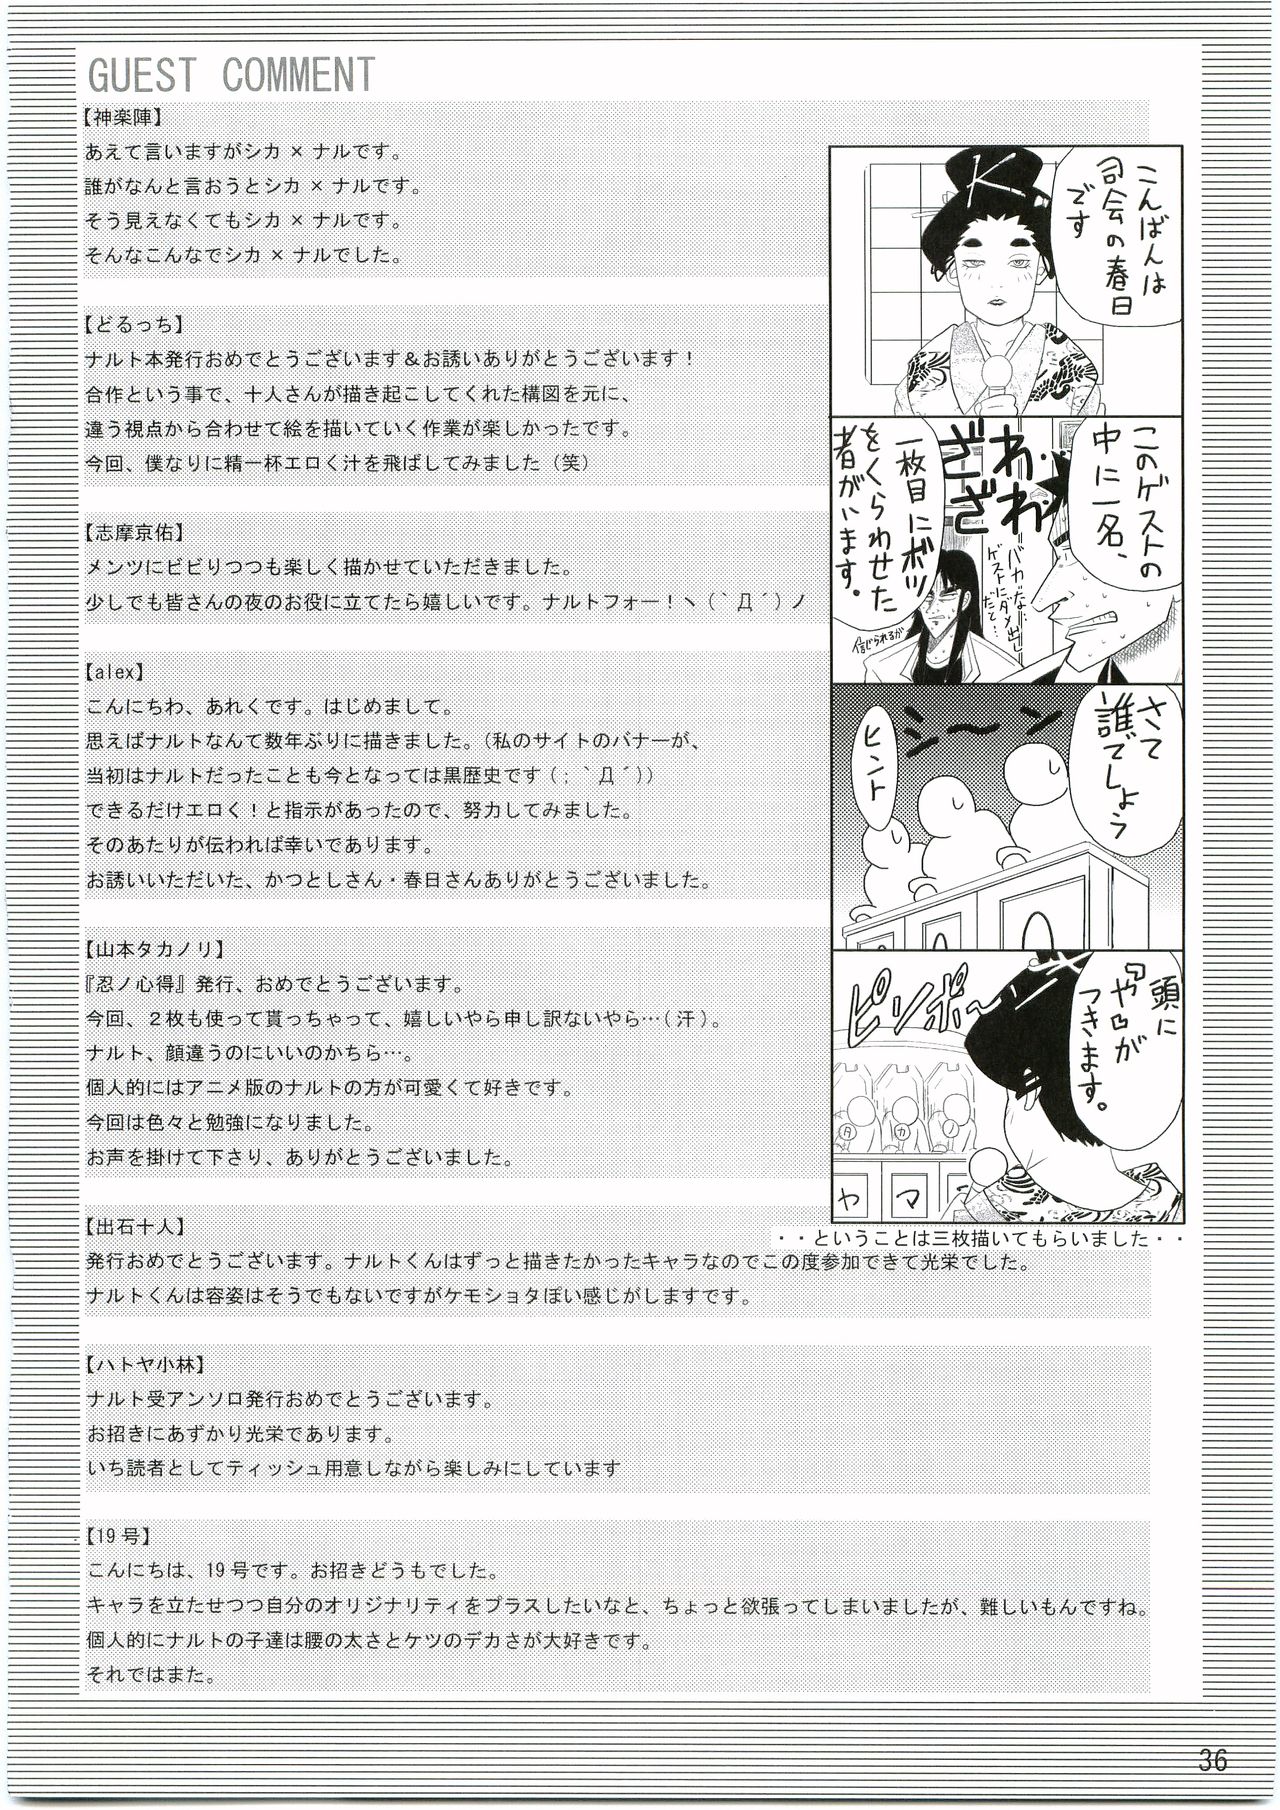 GUEST COMMENT
【神楽陣】
あえて言いますがシカ×ナルです。
誰がなんと言おうとシカ×ナルです。
そう見えなくてもシカ×ナルです。
そんなこんなでシカ×ナルでした。
【どるっち】
ナルト本発行おめでとうございます＆お誘いありがとうございます！
合作という事で、十人さんが描き起こしてくれた構図を元に、
違う視点から合わせて絵を描いていく作業が楽しかったです。
今回、僕なりに精一杯エロく汁を飛ばしてみました（笑）
【志摩京佑】
メンツにビビりつつも楽しく描かせていただきました。
少しでも皆さんの夜のお役に立てたら嬉しいです。ナルトフォー！ヽ（｀Д´）ノ
【alex】
こんにちわ、あれくです。はじめまして。
思えばナルトなんて数年ぶりに描きました。（私のサイトのバナーが、
当初はナルトだったことも今となっては黒歴史です（；｀Д´））
できるだけエロく！と指示があったので、努力してみました。
そのあたりが伝われば幸いであります。
お誘いいただいた、かつとしさん・春日さんありがとうございました。
【山本タカノリ】
『忍ノ心得』発行、おめでとうございます。
今回、２枚も使って貰っちゃって、嬉しいやら申し訳ないやら…（汗）。
ナルト、顔違うのにいいのかちら…。
個人的にはアニメ版のナルトの方が可愛くて好きです。
今回は色々と勉強になりました。
お声を掛けて下さり、ありがとうございました。
【出石十人】
発行おめでとうございます。ナルトくんはずっと描きたかったキャラなのでこの度参加できて光栄でした。
ナルトくんは容姿はそうでもないですがケモショタぽい感じがしますです。
【ハトヤ小林】
ナルト受アンソロ発行おめでとうございます。
お招きにあずかり光栄であります。
いち読者としてティッシュ用意しながら楽しみにしています
【19号】
こんにちは、19号です。お招きどうもでした。
キャラを立たせつつ自分のオリジナリティをプラスしたいなと、ちょっと欲張ってしまいましたが、難しいもんですね。
個人的にナルトの子達は腰の太さとケツのデカさが大好きです。
それではまた。
こんばんは
司会の春日
です
K
このゲストの
中に一名、
ざわ・・
ざわ
一枚目にボツ
をくらわせた
者がいます。
バカな…
ゲストにダメ出し
だと…
信じられるか
さて
誰でしょう
シ〜ン
ヒント
頭に
『ヤ』が
つきます。
ピンポ〜ン
タ
カ
ノ
ヤ
マ
・・ということは三枚描いてもらいました・・
36